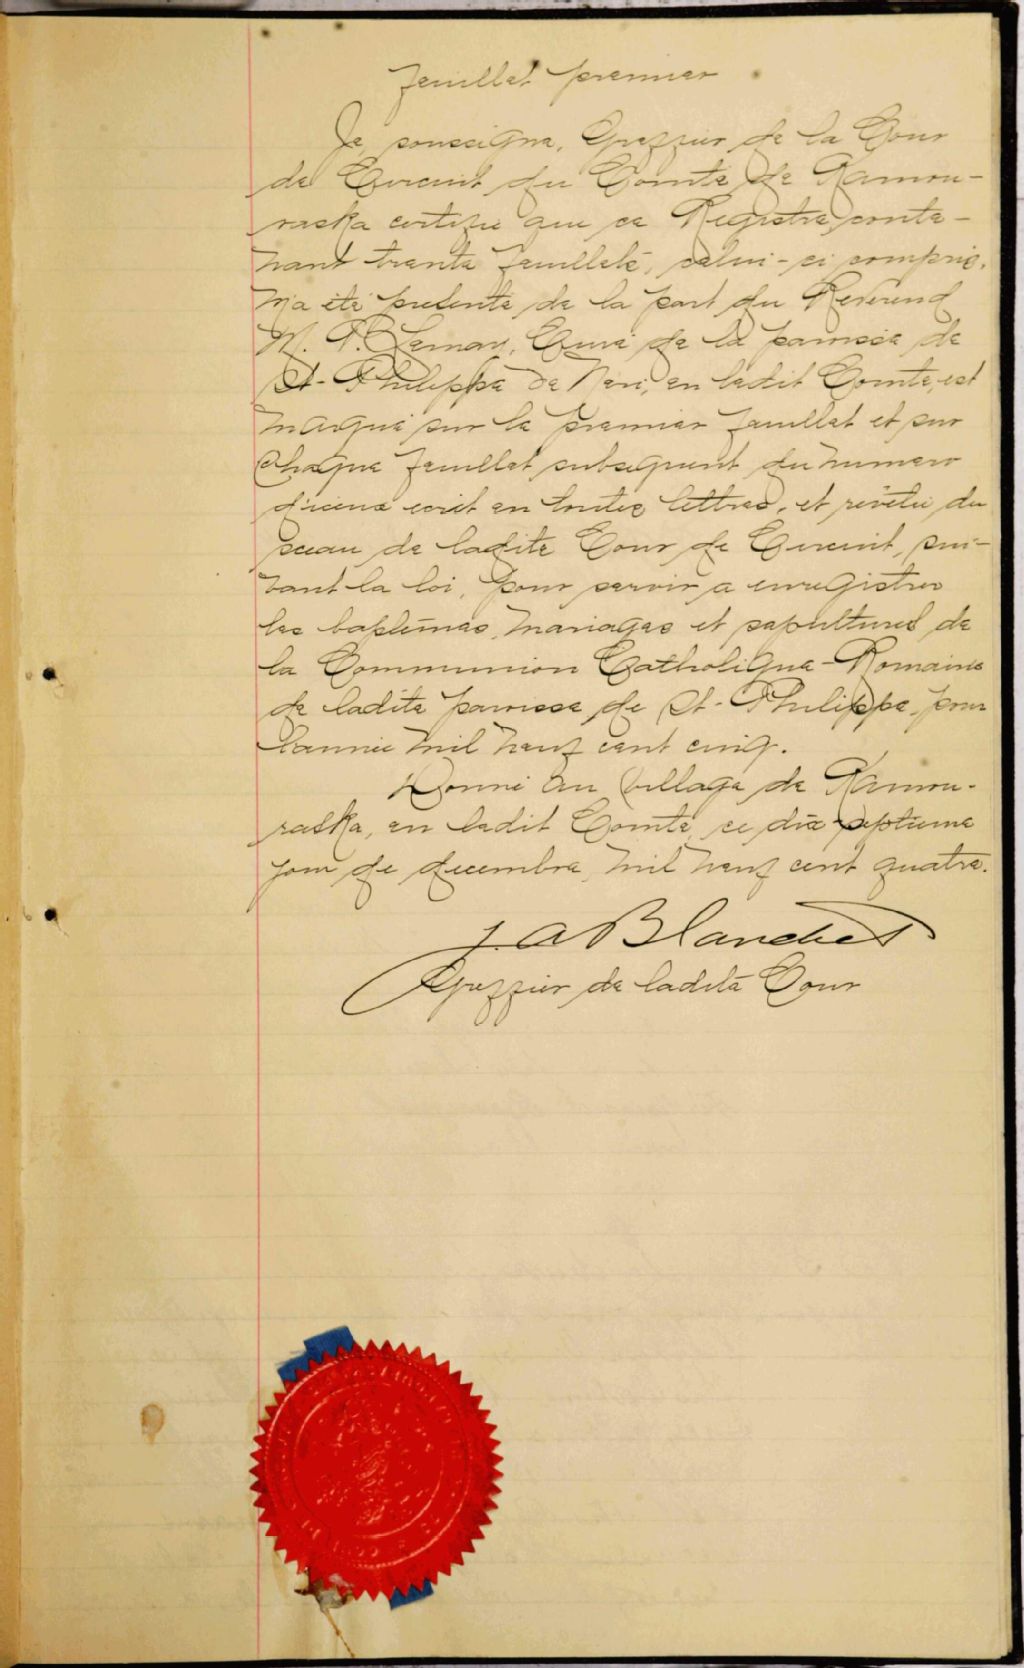 feuillet premier
Je, soussigné, Greffier de la Cour
de Circuit du Comté de Kamou-
raska certifie que ce Registre conte-
nant trente feuillets, celui-ci compris,
m'a été présenté de la part du Révérend
M. P. Lemay, Curé de la paroisse de
St-Philippe de Néri, en ledit Comté, est
marqué sur le premier feuillet et sur
chaque feuillet subséquent du numéro
d'iceux écrit en toutes lettres, et revêtu du
sceau de ladite Cour de Circuit, sui-
vant la loi, pour servir a enregistrer
les baptêmes, mariages et sépultures de
la Communion Catholique-Romaine
de ladite paroisse de St-Philippe, pour
l'année mil neuf cent cinq.
Donné au Village de Kamou-
raska, en ledit Comté, ce dix-septième
jour de décembre, mil neuf cent quatre.
J. A Blanchet
Greffier de ladite Cour